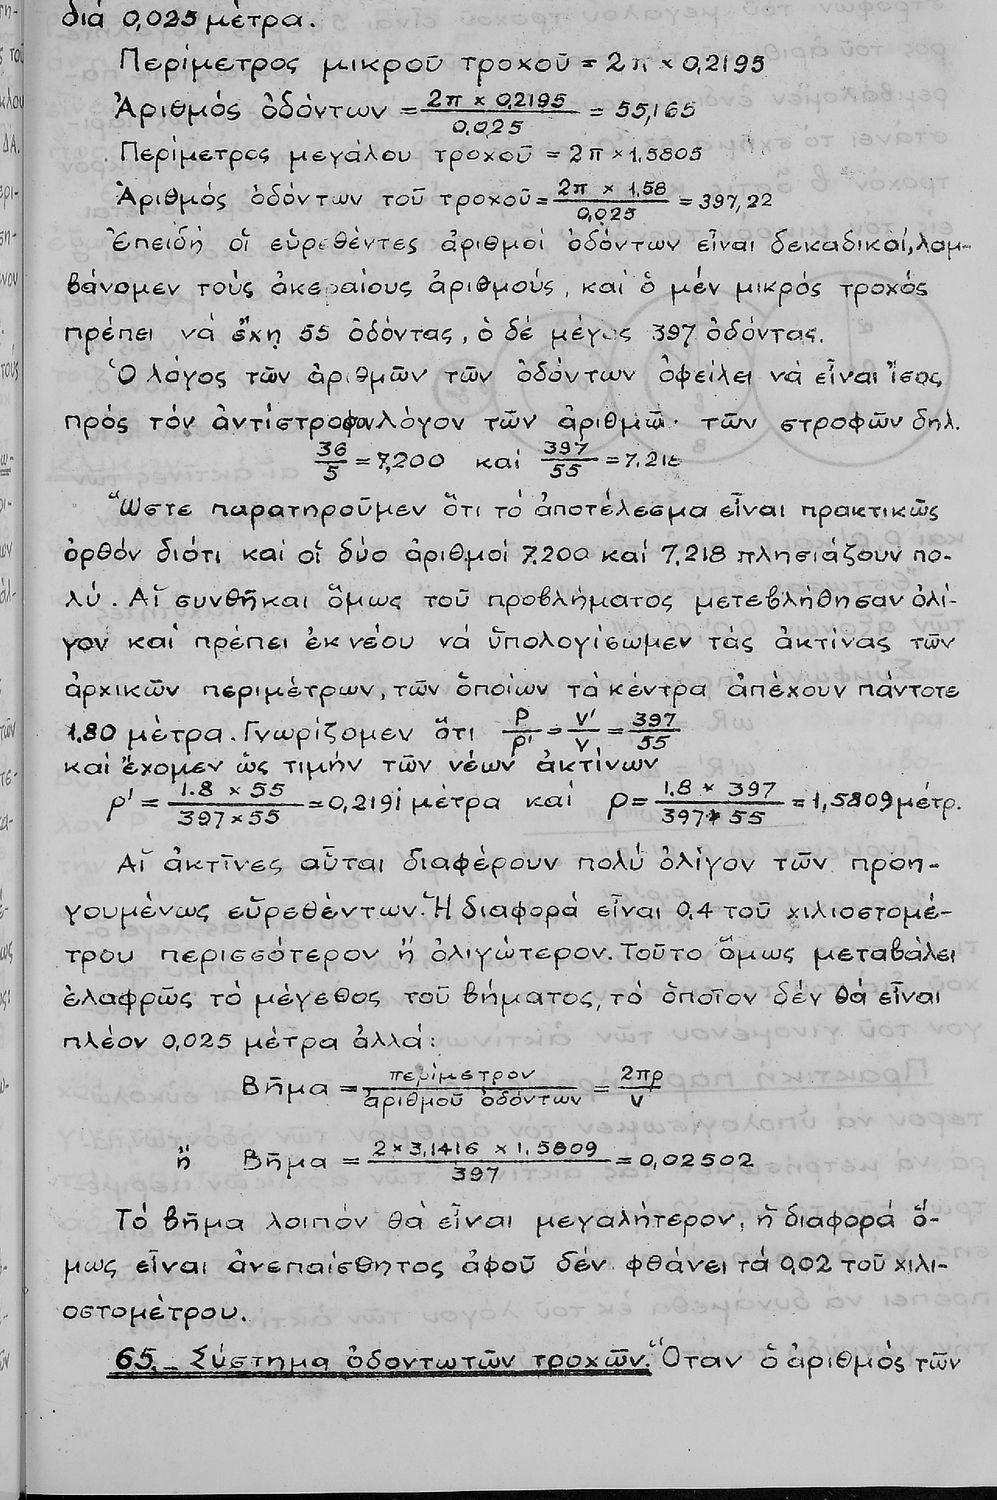 διά 0,025 μέτρα.
Περίμετρος μικροῦ τροχοῦ = 2π × 0,2195
Ἀριθμός ὀδόντων = 2π × 0,2195 / 0,025 = 55,165
Περίμετρος μεγάλου τροχοῦ = 2π × 1,5805
Ἀριθμός ὀδόντων τοῦ τροχοῦ = 2π × 1,58 / 0,025 = 397,22
Ἐπειδή οἱ εὑρεθέντες ἀριθμοί ὀδόντων εἶναι δεκαδικοί, λαμ-
βάνομεν τούς ἀκεραίους ἀριθμούς, καί ὁ μέν μικρός τροχός
πρέπει νά ἔχῃ 55 ὀδόντας, ὁ δέ μέγας 397 ὀδόντας.
Ὁ λόγος τῶν ἀριθμῶν τῶν ὀδόντων ὀφείλει νά εἶναι ἴσος
πρός τόν ἀντίστροφον λόγον τῶν ἀριθμῶ τῶν στροφῶν δηλ.
36/5 = 7,200 καί 397/55 = 7.218
Ὥστε παρατηροῦμεν ὅτι τό ἀποτέλεσμα εἶναι πρακτικῶς
ὀρθόν διότι καί οἱ δύο ἀριθμοί 7.200 καί 7,218 πλησιάζουν πο-
λύ. Αἱ συνθῆκαι ὅμως τοῦ προβλήματος μετεβλήθησαν ὀλί-
γον καί πρέπει ἐκ νέου νά ὑπολογίσωμεν τάς ἀκτίνας τῶν
ἀρχικῶν περιμέτρων, τῶν ὁποίων τά κέντρα ἀπέχουν πάντοτε
1.80 μέτρα. Γνωρίζομεν ὅτι ρ/ρ' = ν'/ν = 397/55
καί ἔχομεν ὡς τιμήν τῶν νέων ἀκτίνων
ρ' = 1.8 × 55 / 397 × 55 = 0,2191 μέτρα καί ρ = 1,8 × 397 / 397 + 55 = 1,5809 μέτρ.
Αἱ ἀκτῖνες αὗται διαφέρουν πολύ ὀλίγον τῶν προη-
γουμένως εὑρεθέντων. Ἡ διαφορά εἶναι 0,4 τοῦ χιλιοστομέ-
τρου περισσότερον ἤ ὀλιγώτερον. Τοῦτο ὅμως μεταβάλει
ἐλαφρῶς τό μέγεθος τοῦ βήματος, τό ὁποῖον δέν θά εἶναι
πλέον 0,025 μέτρα ἀλλά:
Βῆμα = περίμετρον / ἀριθμοῦ ὀδόντων = 2πρ / ν
ἤ Βῆμα = 2 × 3,1416 × 1,5809 / 397 = 0,02502
Τό βῆμα λοιπόν θά εἶναι μεγαλήτερον, ἡ διαφορά ὅ-
μως εἶναι ἀνεπαίσθητος ἀφοῦ δέν φθάνει τά 0,02 τοῦ χιλι-
οστομέτρου.
65.- Σύστημα ὀδοντωτῶν τροχῶν. Ὅταν ὁ ἀριθμός τῶν